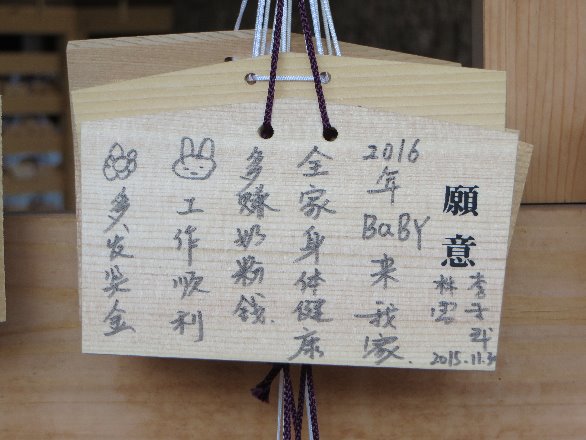 願意
李
林
2015.11.30
2016年BaBY来我家.
全家身体健康
多赚奶粉钱.
工作顺利
多发奖金